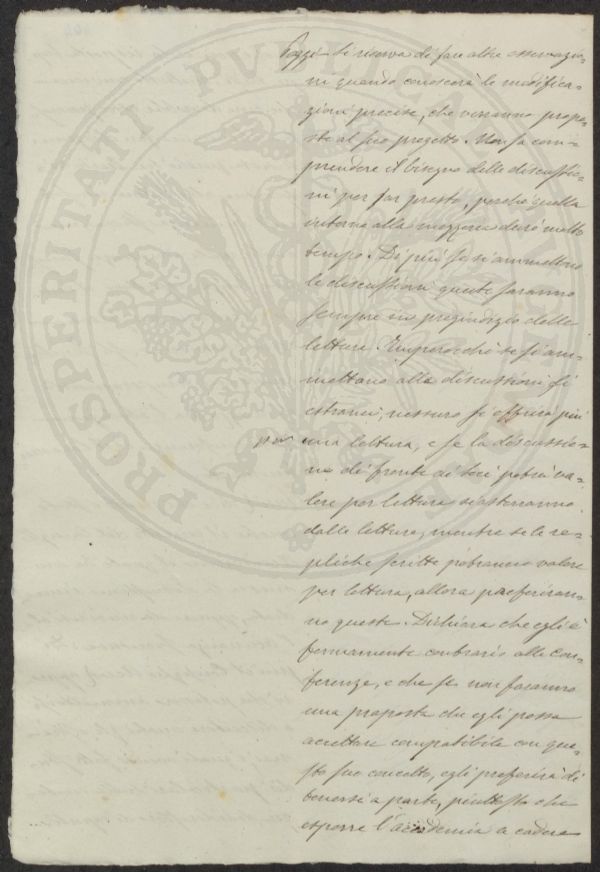 Poggi si riserva di fare altre osservazio-
ni quando conoscerà le modifica-
zioni precise, che verranno propo-
ste al suo progetto. Non sa com-
prendere il bisogno delle discussio-
ni per far presto, perché quella
intorno alla mezzeria durò molto
tempo. Di più se si ammettono
le discussioni queste saranno
sempre in pregiudizio delle
letture. Imperocchè se si am-
mettano alle discussioni gli
estranei, nessuno si offrirà più
una lettura, e se la discussio-
ne di fronte ai soci potrà va-
lere per lettura si asterranno
dalle letture, mentre se le re-
pliche scritte potranno valere
per lettura, allora preferiran-
no queste. Dichiara che egli è
fermamente contrario alle con-
ferenze, e che se non faranno
una proposta che egli possa
accettare compatibile con que-
sto suo concetto, egli preferirà di
tenersi a parte, piuttosto che
esporre l'accademia a cadere
PROSPERITATI PVBLICAE